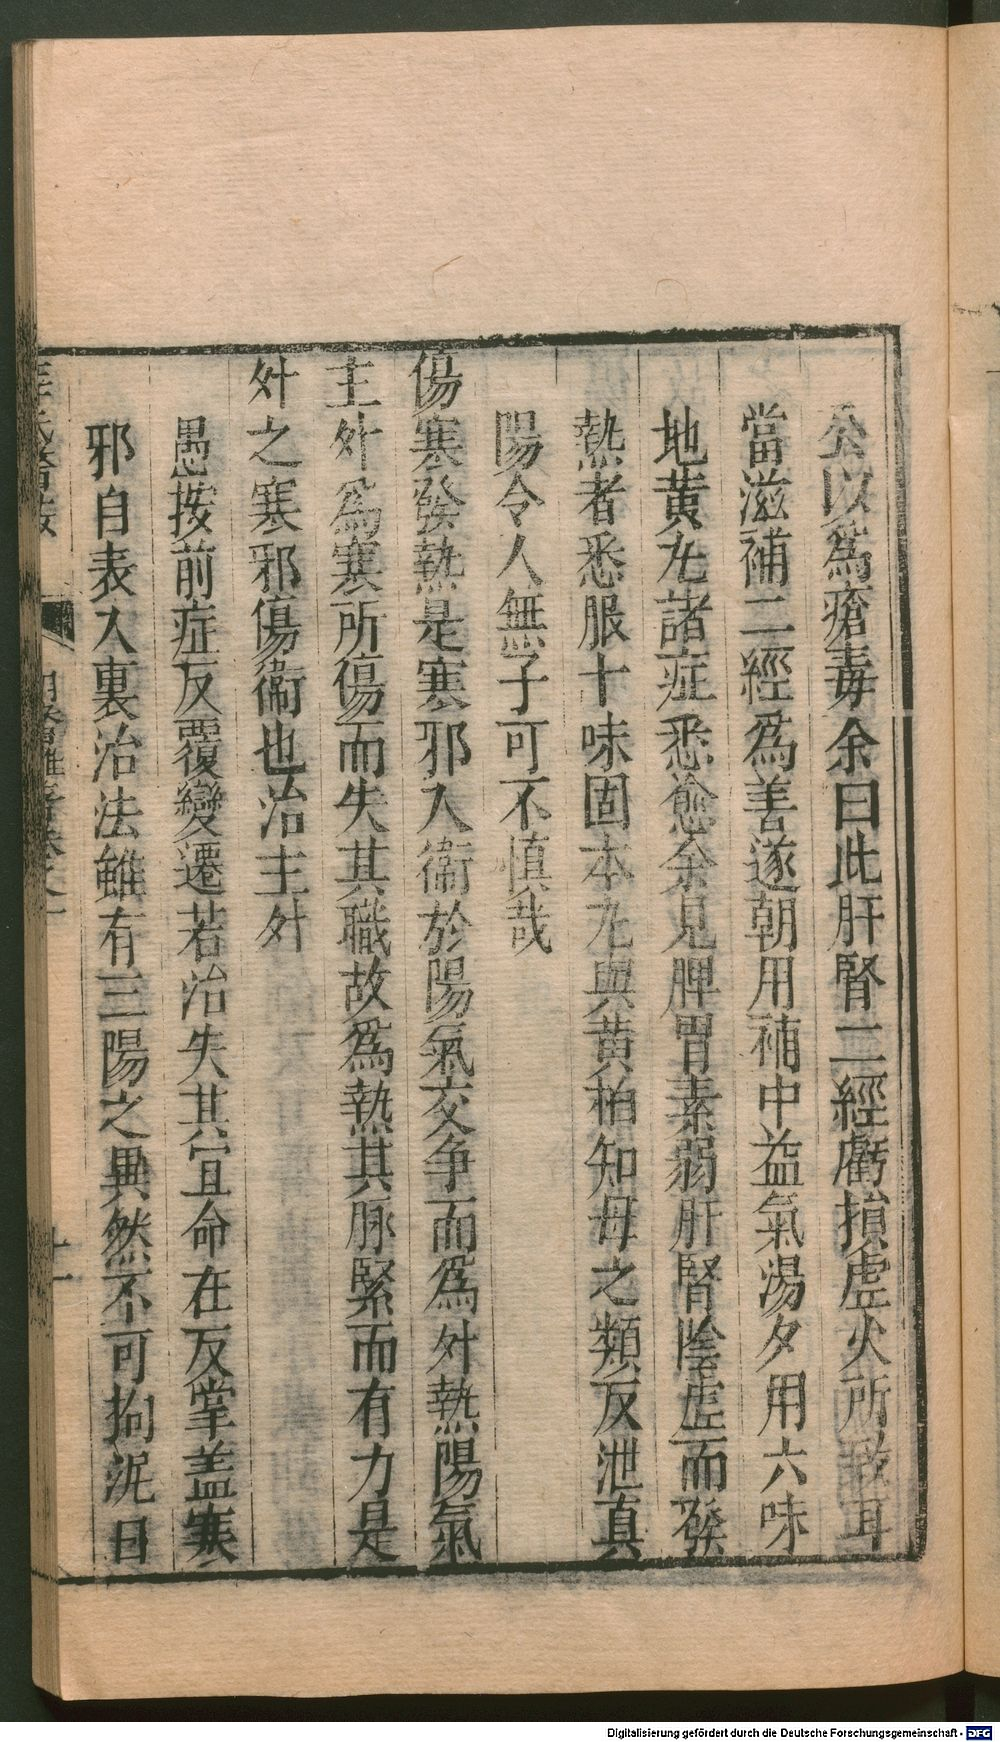 公以為瘡毒余曰此肝腎二經虧損虛火所致耳
當滋補二經為善遂朝用補中益氣湯夕用六味
地黃丸諸症悉愈余見脾胃素弱肝腎陰虛而發
熱者悉服十味固本丸與黃柏知母之類反泄真
陽令人無子可不慎哉
傷寒發熱是寒邪入衛於陽氣交争而為外熱陽氣
主外為寒所傷而失其職故為熱其脉緊而有力是
外之寒邪傷衛也治主外
愚按前症反覆變遷若治失其宜命在反掌盖寒
邪自表入裏治法雖有三陽之異然不可拘泥日
明醫雜著卷之一
十一
Digitalisierung gefördert durch die Deutsche Forschungsgemeinschaft - DFG